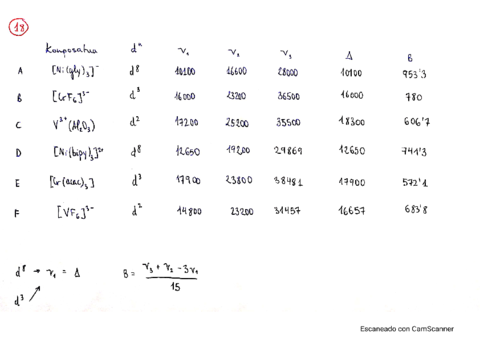 18
Konposatua dⁿ ν₁ ν₂ ν₃ Δ B
A [Ni(gly)₃]⁻ d⁸ 10100 16600 28000 10100 953'3
B [CrF₆]³⁻ d³ 16000 23200 36500 16000 780
C V³⁺(Al₂O₃) d² 17200 25200 35500 18300 606'7
D [Ni(bipy)₃]²⁺ d⁸ 12650 19200 29869 12650 741'3
E [Cr(acac)₃] d³ 17900 23800 38481 17900 572'1
F [VF₆]³⁻ d² 14800 23200 31457 16657 683'8
d⁸ → ν₁ = Δ B = ν₃ + ν₂ - 3ν₁
15
d³
Escaneado con CamScanner